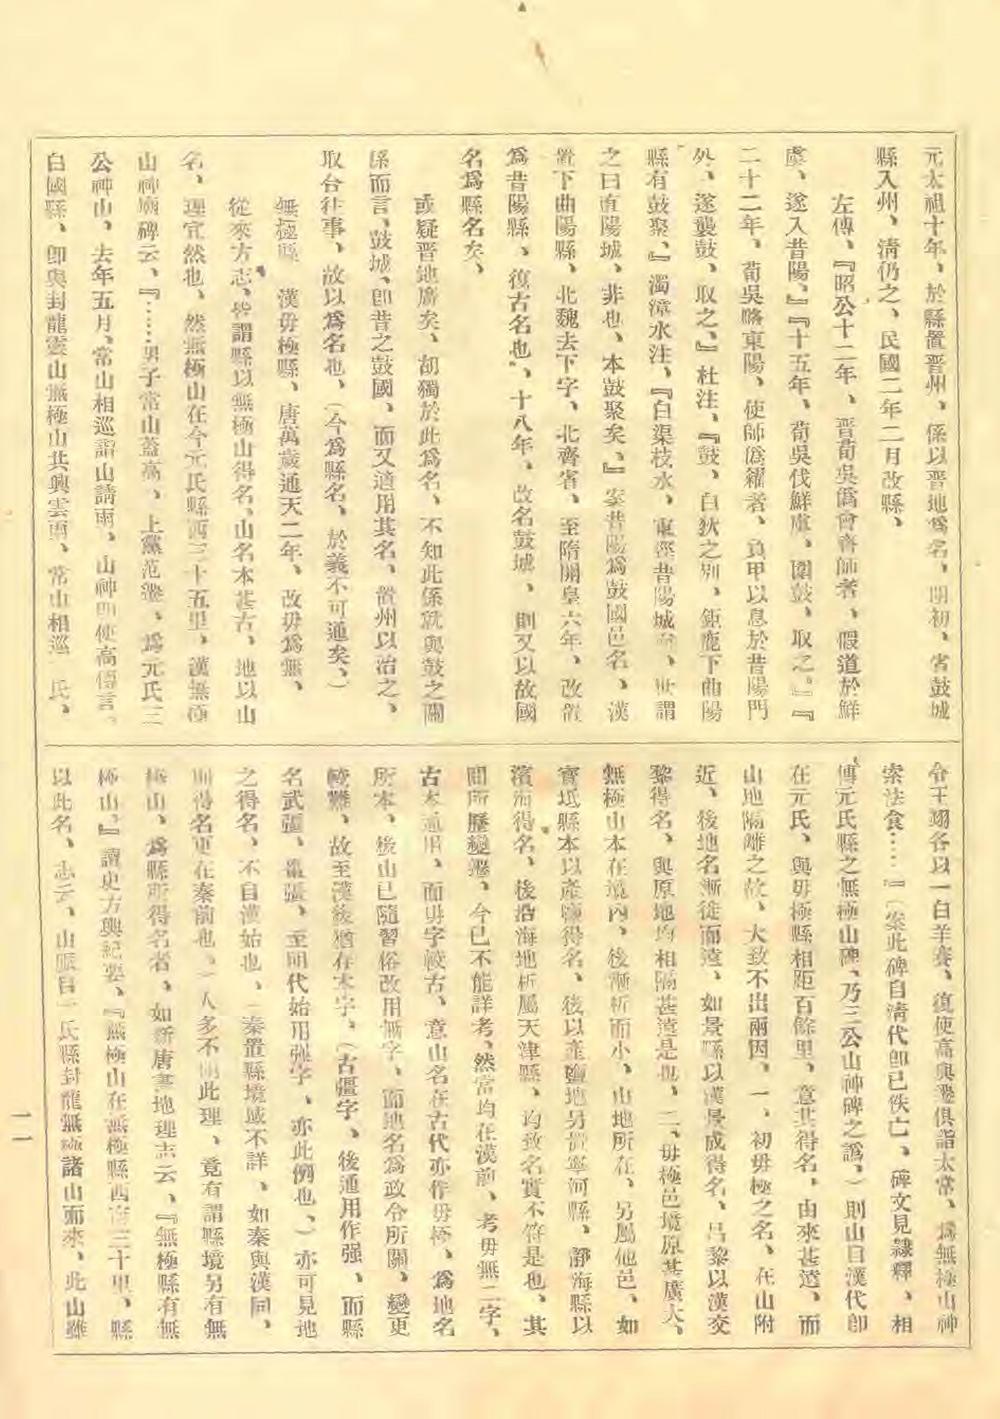 元太祖十年、於縣置晉州、係以晉地爲名、明初、省鼓城
縣入州、淸仍之、民國二年二月改縣、
左傳、『昭公十二年、晉荀吳僞會齊師者、假道於鮮
虞、遂入昔陽、』『十五年、荀吳伐鮮虞、圍鼓、取之。』『
二十二年、荀吳略東陽、使師僞糴者、負甲以息於昔陽門
外、遂襲鼓、取之、』杜注、『鼓、白狄之別、鉅鹿下曲陽
縣有鼓聚、』濁漳水注、『白渠枝水、東徑昔陽城南、世謂
之曰直陽城、非也、本鼓聚矣、』案昔陽爲鼓國邑名、漢
置下曲陽縣、北魏去下字、北齊省、至隋開皇六年、改置
爲昔陽縣、復古名也、十八年、改名鼓城、則又以故國
名爲縣名矣、
或疑晉地廣矣、胡獨於此爲名、不知此係就與鼓之關
係而言、鼓城、卽昔之鼓國、而又適用其名、置州以治之、
取合往事、故以爲名也、（今爲縣名、於義不可通矣、）
無極縣　漢毋極縣、唐萬歲通天二年、改毋爲無、
從來方志、皆謂縣以無極山得名、山名本甚古、地以山
名、理宜然也、然無極山在今元氏縣西三十五里、漢無極
山神廟碑云、『……男子常山蓋高、上黨范遷、爲元氏三
公神山、去年五月、常山相巡詣山請雨、山神卽使高傳言、
白國縣、卽與封龍靈山無極山共興雲雨、常山相巡　氏、
令王翊各以一白羊賽、復使高與遷俱詣太常、爲無極山神
索法食……』（案此碑自淸代卽已佚亡、碑文見隸釋、相
傳元氏縣之無極山碑、乃三公山神碑之譌、）則山自漢代卽
在元氏、與毋極縣相距百餘里、意其得名、由來甚遠、而
山地隔離之故、大致不出兩因、一、初毋極之名、在山附
近、後地名漸徙而遠、如景縣以漢景成得名、昌黎以漢交
黎得名、與原地均相隔甚遠是也、二、毋極邑境原甚廣大、
無極山本在境內、後漸析而小、山地所在、另屬他邑、如
寶坻縣本以產鹽得名、後以產鹽地另置寧河縣、靜海縣以
濱海得名、後沿海地析屬天津縣、均致名實不符是也、其
間所歷變遷、今已不能詳考、然當均在漢前、考毋無二字、
古本通用、而毋字較古、意山名在古代亦作毋極、爲地名
所本、後山已隨習俗改用無字、而地名爲政令所關、變更
較難、故至漢後猶存本字、（古彊字、後通用作强、而縣
名武彊、棗彊、至明代始用强字、亦此例也、）亦可見地
之得名、不自漢始也、（秦置縣境域不詳、如秦與漢同、
則得名更在秦前也、）人多不明此理、竟有謂縣境另有無
極山、爲縣所得名者、如新唐書地理志云、『無極縣有無
極山、』讀史方輿紀要、『無極山在無極縣西南三十里、縣
以此名、志云、山脈自元氏縣封龍無極諸山而來、此山雖
一一